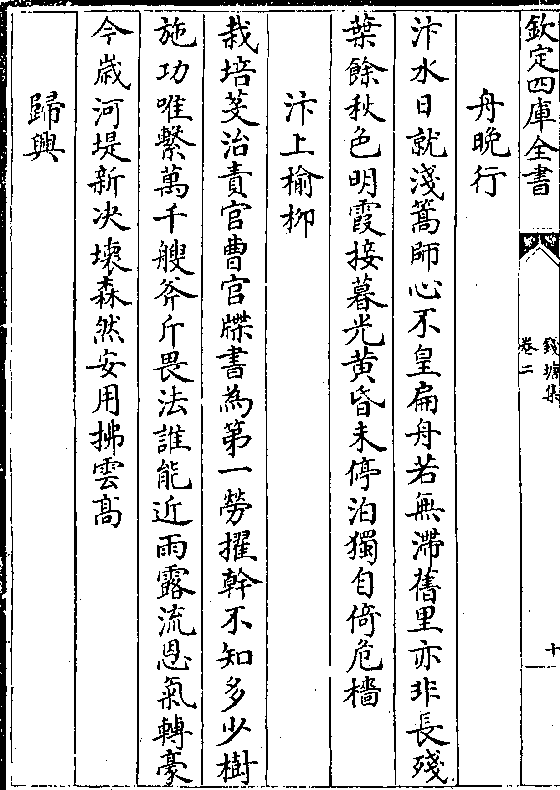 欽定四庫全書
錢塘集
卷二
十
舟晚行
汴水日就淺篙師心不皇扁舟若無滯舊里亦非長殘
葉餘秋色明霞接暮光黄昏未停泊獨自倚危檣
汴上榆栁
栽培芟治責官曹官牒書為第一勞擢幹不知多少樹
施功唯繫萬千艘斧斤畏法誰能近雨露流恩氣轉豪
今歳河堤新决壊森然安用拂雲髙
歸興